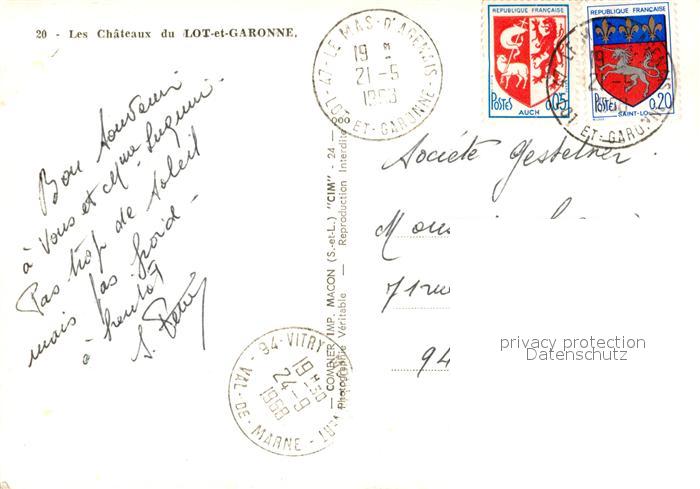 20 - Les Châteaux du LOT-et-GARONNE.
Bon Souvenir
à Vous et Mme
Pas trop de Soleil
mais pas froid -
à bientôt
47 - LE MAS-D'AGENAIS
19 H
21-5
1968
LOT-ET-GARONNE
94 - VITRY
19 H 30
24-9
1968
VAL-DE-MARNE
COMBIER IMP. MACON (S.-et-L.) "CIM" - 24 - 000
Photographie Véritable - Reproduction Interdite
REPUBLIQUE FRANÇAISE
POSTES
0,05
AUCH
REPUBLIQUE FRANÇAISE
POSTES
0,20
SAINT-LO
Société Gestetner
71 rue
94
privacy protection
Datenschutz